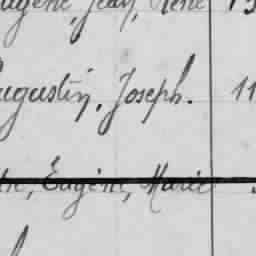 Eugène, Jean, René
Augustin, Joseph. 11
Eugène, Marie